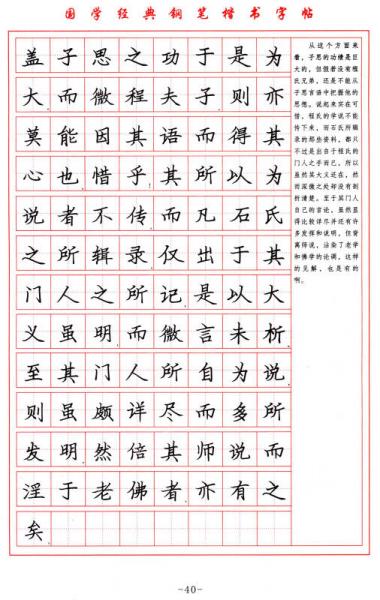 国学经典钢笔楷书字帖
盖子思之功于是为
大,而微程夫子,则亦
莫能因其语而得其
心也。惜乎!其所以为
说者不传,而凡石氏
之所辑录,仅出于其
门人之所记,是以大
义虽明,而微言未析。
至其门人所自为说,
则虽颇详尽而多所
发明,然倍其师说而
淫于老佛者,亦有之
矣。
从这个方面来
看,子思的功绩是巨
大的,但假若没有程
氏兄弟,还是不能从
子思言语中把握他的
思想。说起来实在可
惜,程氏的学说不能
传下来,而石氏所辑
录的那些资料,都只
不过是出自于程氏的
门人之手而已,所以
虽然其大义还在,然
而深微之处却没有剖
析清楚。至于其门人
自己的言论,虽然显
得比较详尽并还有许
多发挥和说明,但背
离师说,沾染了老学
和佛学的论调,这样
的见解,也是有的
啊。
-40-